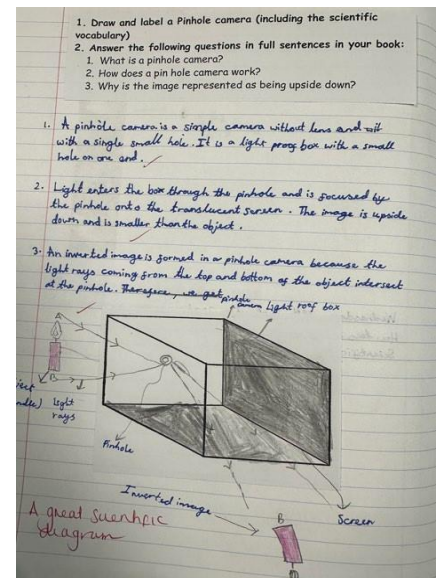 1. Draw and label a Pinhole camera (including the scientific
vocabulary)
2. Answer the following questions in full sentences in your book:
1. What is a pinhole camera?
2. How does a pin hole camera work?
3. Why is the image represented as being upside down?
1. A pinhole camera is a simple camera without lens and
with a single small hole. It is a light proof box with a small
hole on one end.
2. Light enters the box through the pinhole and is focused by
the pinhole onto the translucent screen. The image is upside
down and is smaller than the object.
3. An inverted image is formed in a pinhole camera because the
light rays coming from the top and bottom of the object intersect
at the pinhole. Therefore, we get
pinhole
camera Light roof box
A
B
Light
rays
Pinhole
Inverted image
Screen
B
A great scientific
diagram